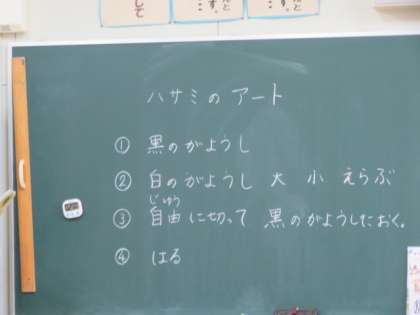 ハサミの アート
① 黒のがようし
② 白のがようし 大 小 えらぶ
じゆう
③ 自由に切って 黒のがようしにおく。
④ はる